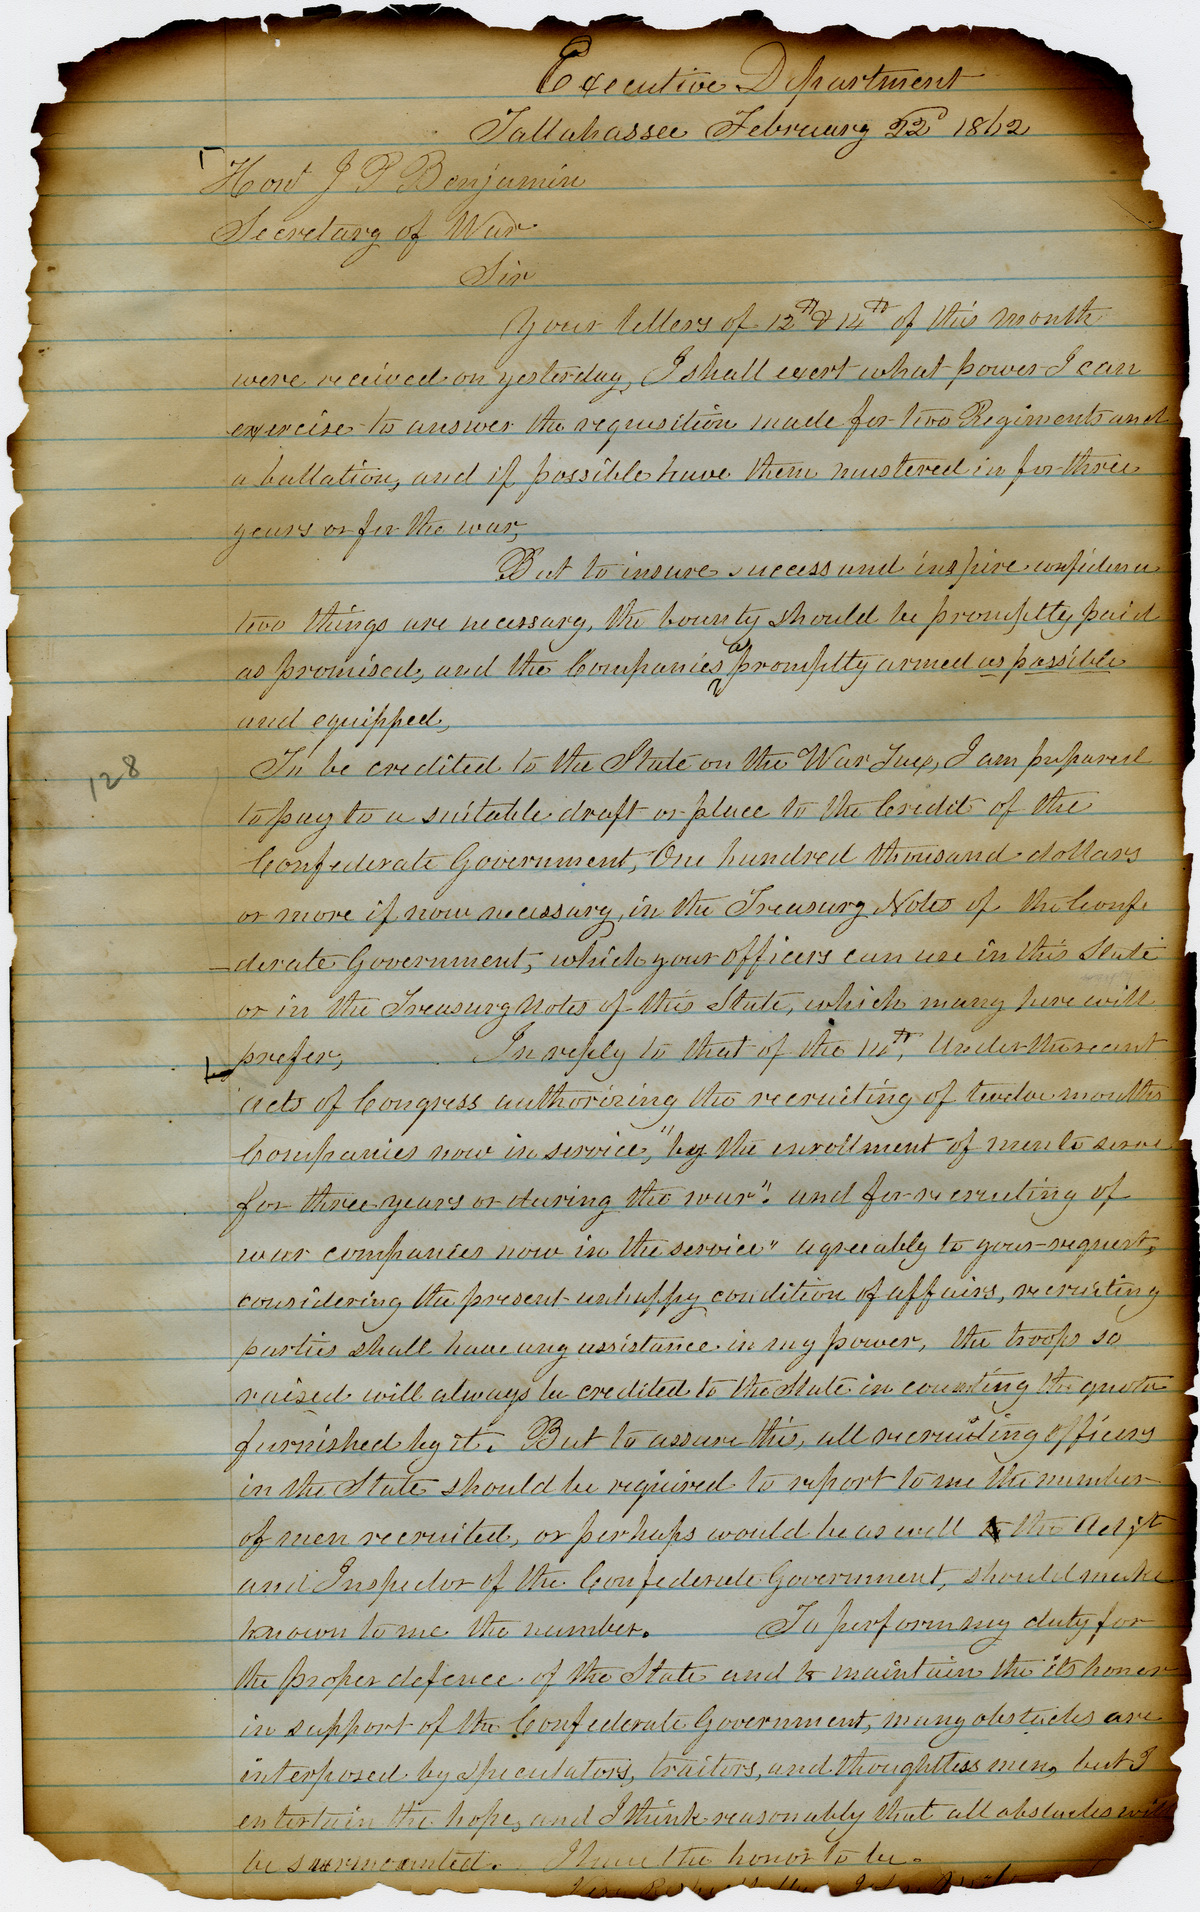 Executive Department
Tallahassee February 22d 1862
Honl J P Benjamin
Secretary of War
Sir
Your letters of 12th & 14th of this month
were received on yesterday, I shall exert what power I can
exercise to answer the requisition made for two Regiments and
a battalion, and if possible have them mustered in for three
years or for the war,
But to insure success and inspire confidence
two things are necessary, the bounty should be promptly paid
as promised, and the Companies as promptly armed as possible
and equipped,
To be credited to the State on the War Tax, I am prepared
to pay to a suitable draft or place to the Credit of the
Confederate Government, One hundred thousand dollars
or more if now necessary, in the Treasury Notes of the Confe
-derate Government, which your officers can use in this State
or in the Treasury Notes of this State, which many here will
prefer, In reply to that of the 14th, Under the recent
acts of Congress authorizing the recruiting of twelve months
Companies now in service, "by the enrollment of men to serve
for three years or during the war". and for recruiting of
war companies now in the service" agreeably to your request,
considering the present unhappy condition of affairs, recruiting
parties shall have any assistance in my power, the troops so
raised will always be credited to the State in counting the quota
furnished by it. But to assure this, all recruiting officers
in the State should be required to report to me the number
of men recruited, or perhaps would be as well the Adjt
and Inspector of the Confederate Government, should make
known to me the number. To perform my duty for
the proper defence of the State and to maintain the its honor
in support of the Confederate Government, many obstacles are
interposed by speculators, traitors, and thoughtless men, but I
entertain the hope, and I think reasonably that all obstacles will
be surmounted. I have the honor to be.
Very Respectfully
128